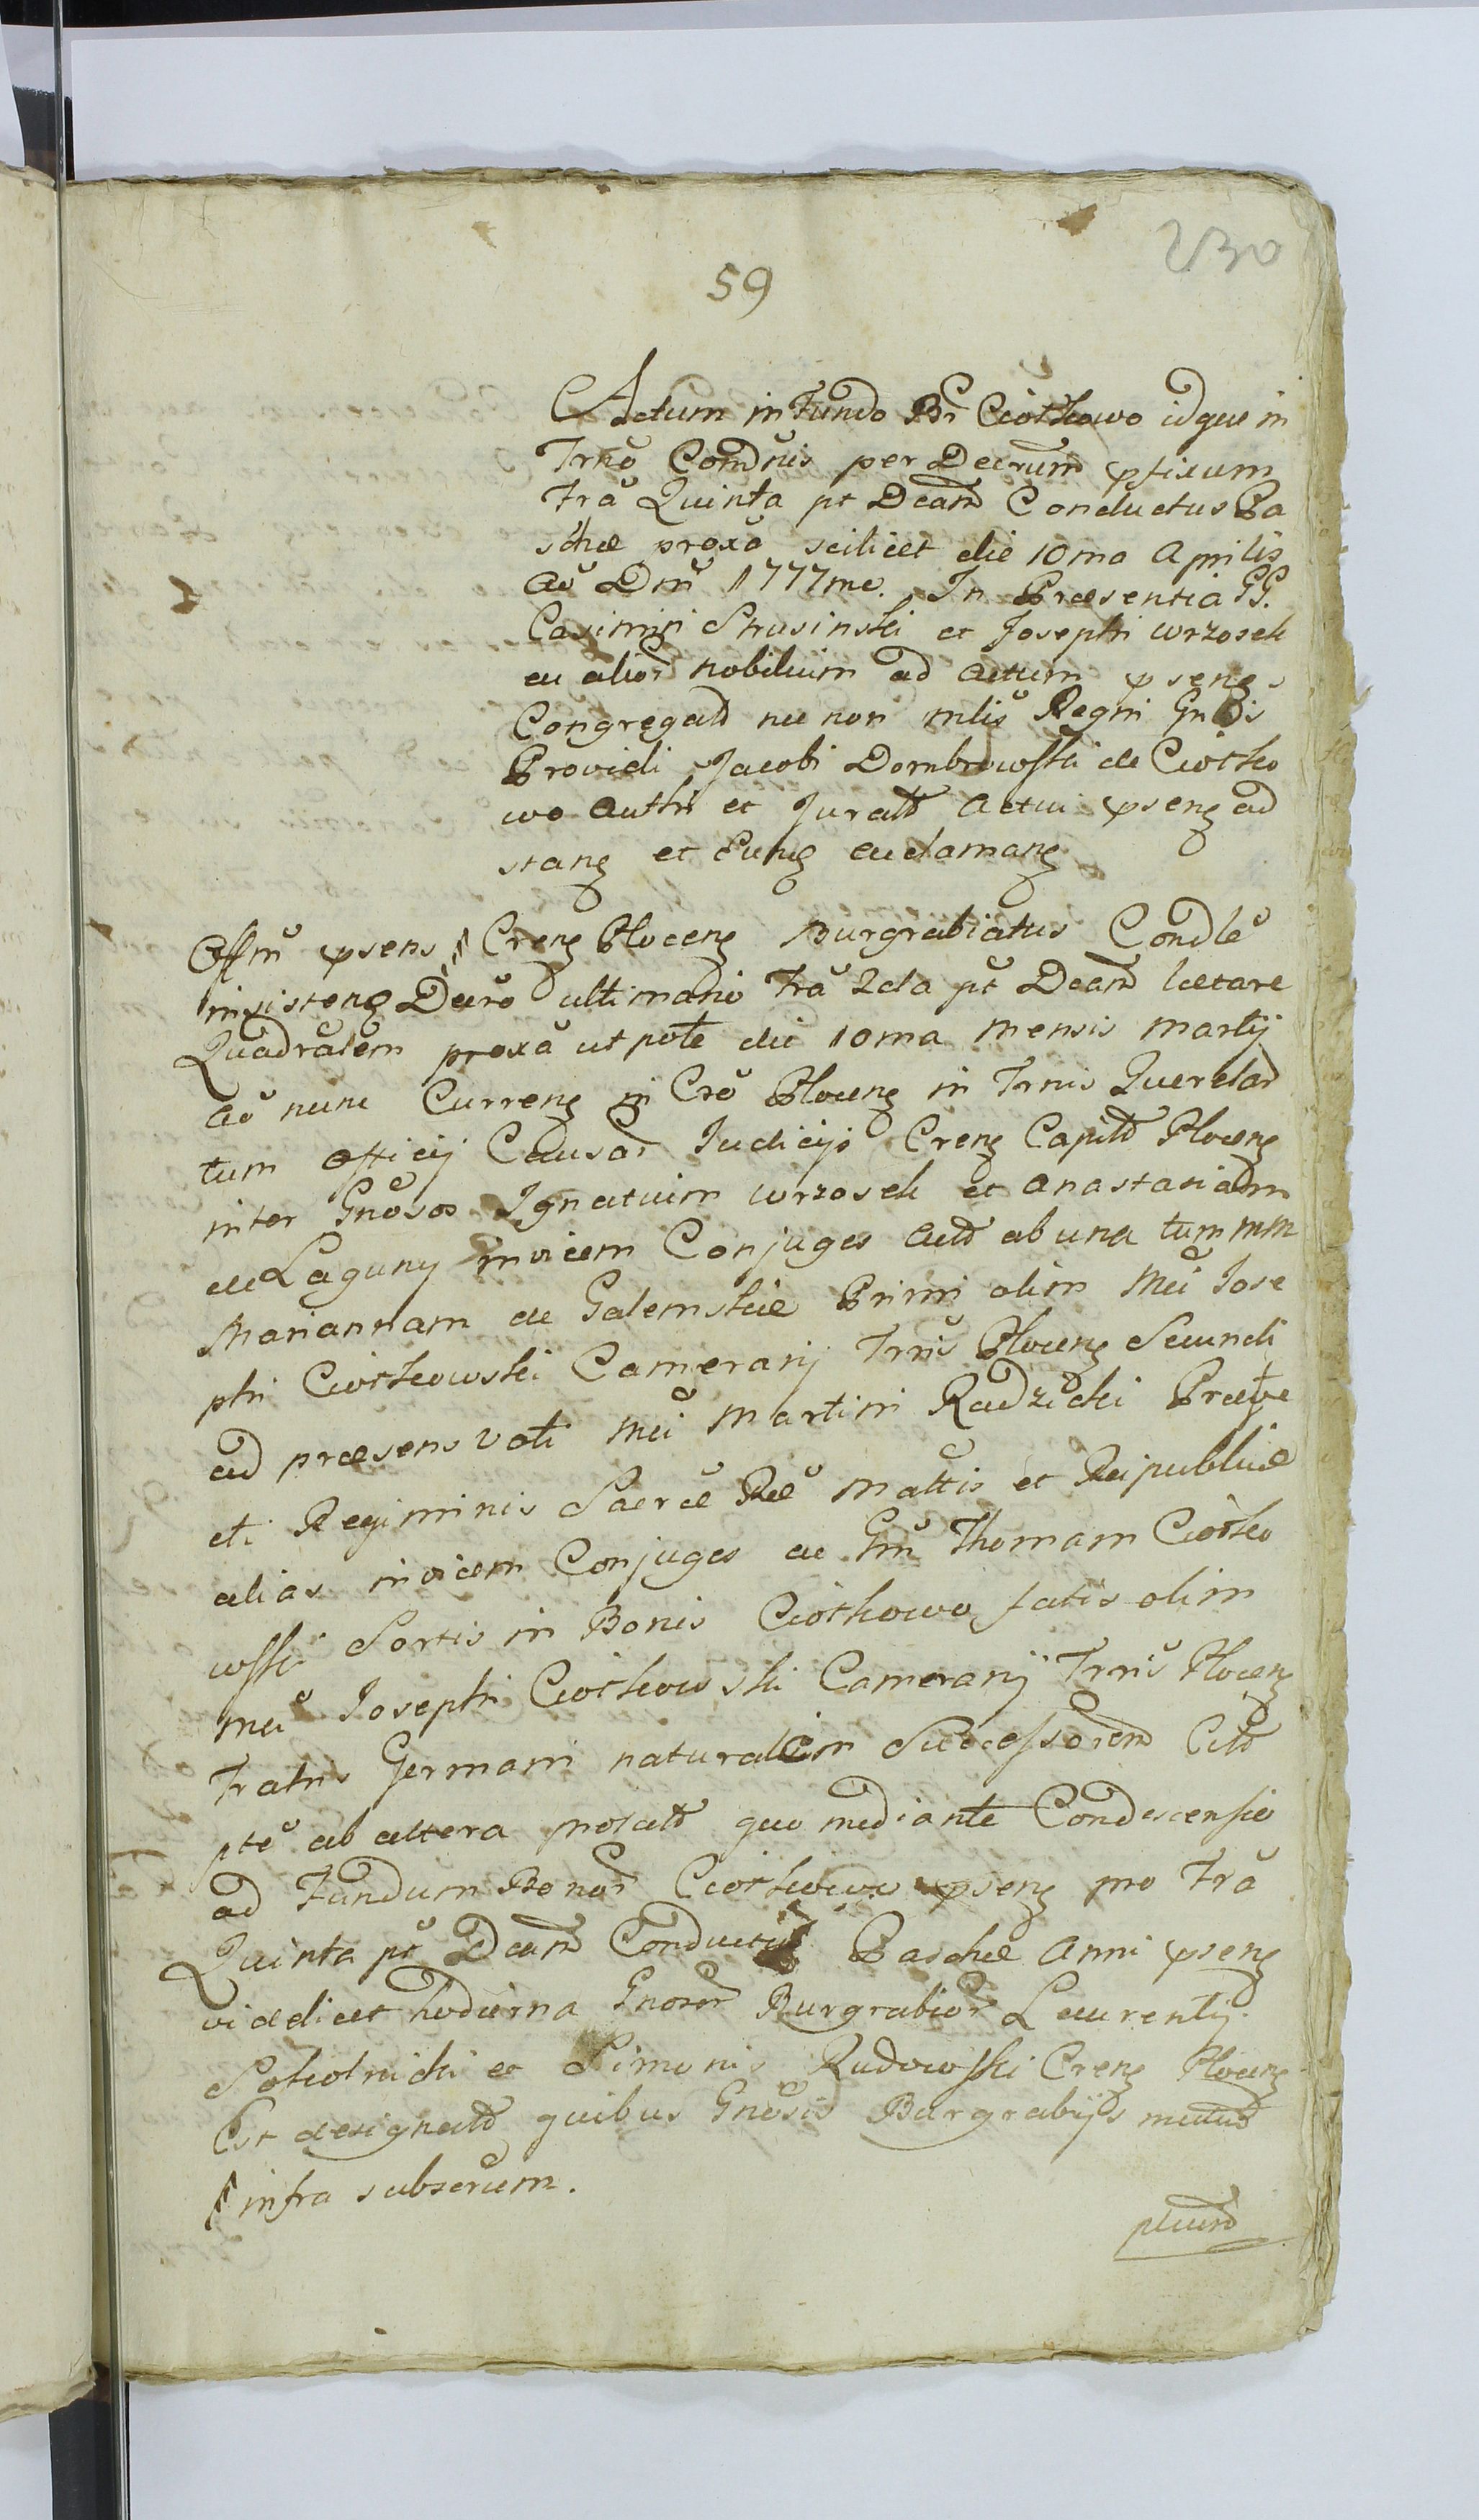 230
59
Actum in Fundo Br Ciotkowo idque in
Trno Comdnis per Decrum pfixum
Fra Quinta pt Dcam Conductus Pa
schæ proxa scilicet die 10ma Aprilis
Ao Dni 1777mo. In Præsentia GG.
Casimiri Strusinski et Josephi Wrzosek
ac alior Nobilium ad Actum psens
Congregat nec non mlis Regni Gnlis
Providi Jacobi Dombrowski de Ciotko
wo Authti et Jurati Actui psens ad
stans et Eung acclamans
Offm psens Crens Plocens Burgrabiatus Condle
insistens Decro ultimario Fra 2da pt Dcam lætare
Quadralem proxa utpote die 10ma Mensis Martij
Ao nunc Currens in Cro Plocens in Trnis Querelar
tum Officij Causar Judicijs Crens Capital Plocens
inter Gnosos Ignatium Wrzosek et Anastasiam
de Laguny invicem Conjuges Act ab una tum MM
Mariannam de Galemskie Primi olim Mci Jose
phi Ciotkowski Camerarij Trris Plocens Secundi
ad præsens voti Mci Martini Radzicki Præfe
cti Regiminis Sacræ Ræ Mattis et Reipublicæ
alias invicem Conjuges ac Gm Thomam Ciotko
wski Sortis in Bonis Ciotkowo fatis olim
Mci Josephi Ciotkowski Camerarij Trris Plocens
Fratris Germani naturalem Successorem Citt
pte ab altera prolat quo mediante Condescensio
ad Fundum Bonor Ciotkowo psens pro Fra
Quinta pt Dcam Conductus Paschæ Anni psens
videlicet hodierna Gnosor Burgrabior Laurentij
Sokolnicki et Simonis Rudowski Crens Plocens
Est designat quibus Gnosis Burgrabijs mediis
infra subscrum.